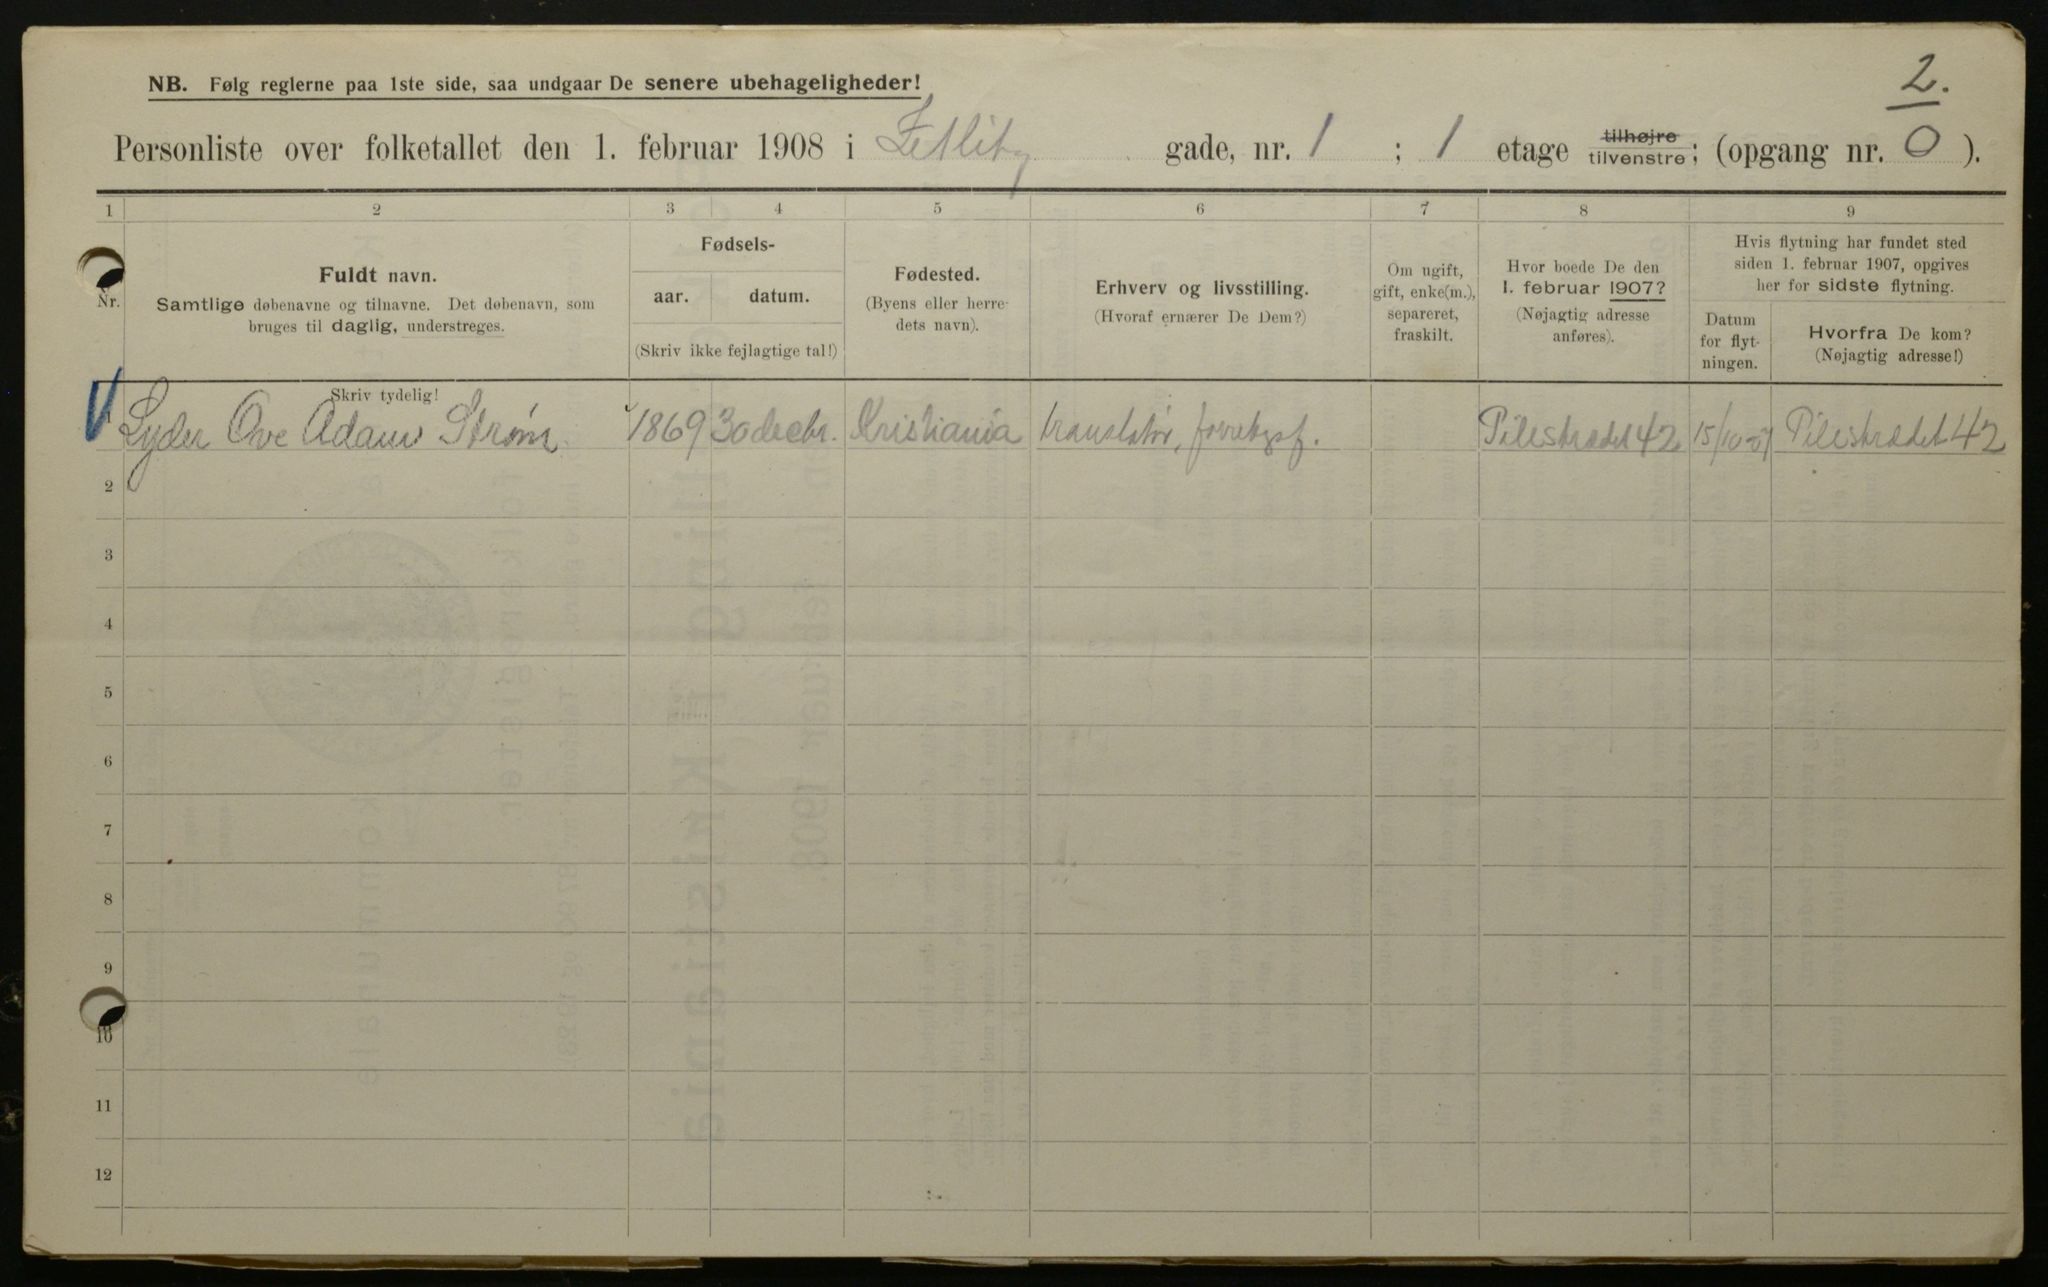 2.
NB. Følg reglerne paa 1ste side, saa undgaar De senere ubehageligheder!
Personliste over folketallet den 1. februar 1908 i Zetlitz gade, nr. 1 ; 1 etage tilhøjre tilvenstre; (opgang nr. 0 ).
1 2 3 4 5 6 7 8 9
Nr.
Fuldt navn.
Samtlige døbenavne og tilnavne. Det døbenavn, som
bruges til daglig, understreges.
Skriv tydelig!
Fødsels-
aar. datum.
(Skriv ikke fejlagtige tal!)
Fødested.
(Byens eller herre-
dets navn).
Erhverv og livsstilling.
(Hvoraf ernærer De Dem?)
Om ugift,
gift, enke(m.),
separeret,
fraskilt.
Hvor boede De den
1. februar 1907?
(Nøjagtig adresse
anføres).
Hvis flytning har fundet sted
siden 1. februar 1907, opgives
her for sidste flytning.
Datum
for flyt-
ningen.
Hvorfra De kom?
(Nøjagtig adresse!)
Lyder Ove Adam Strøm 1869 30 decbr. Kristiania translatør, forretgsf. Pilestrædet 42 15/10-07 Pilestrædet 42
2
3
4
5
6
7
8
9
10
11
12